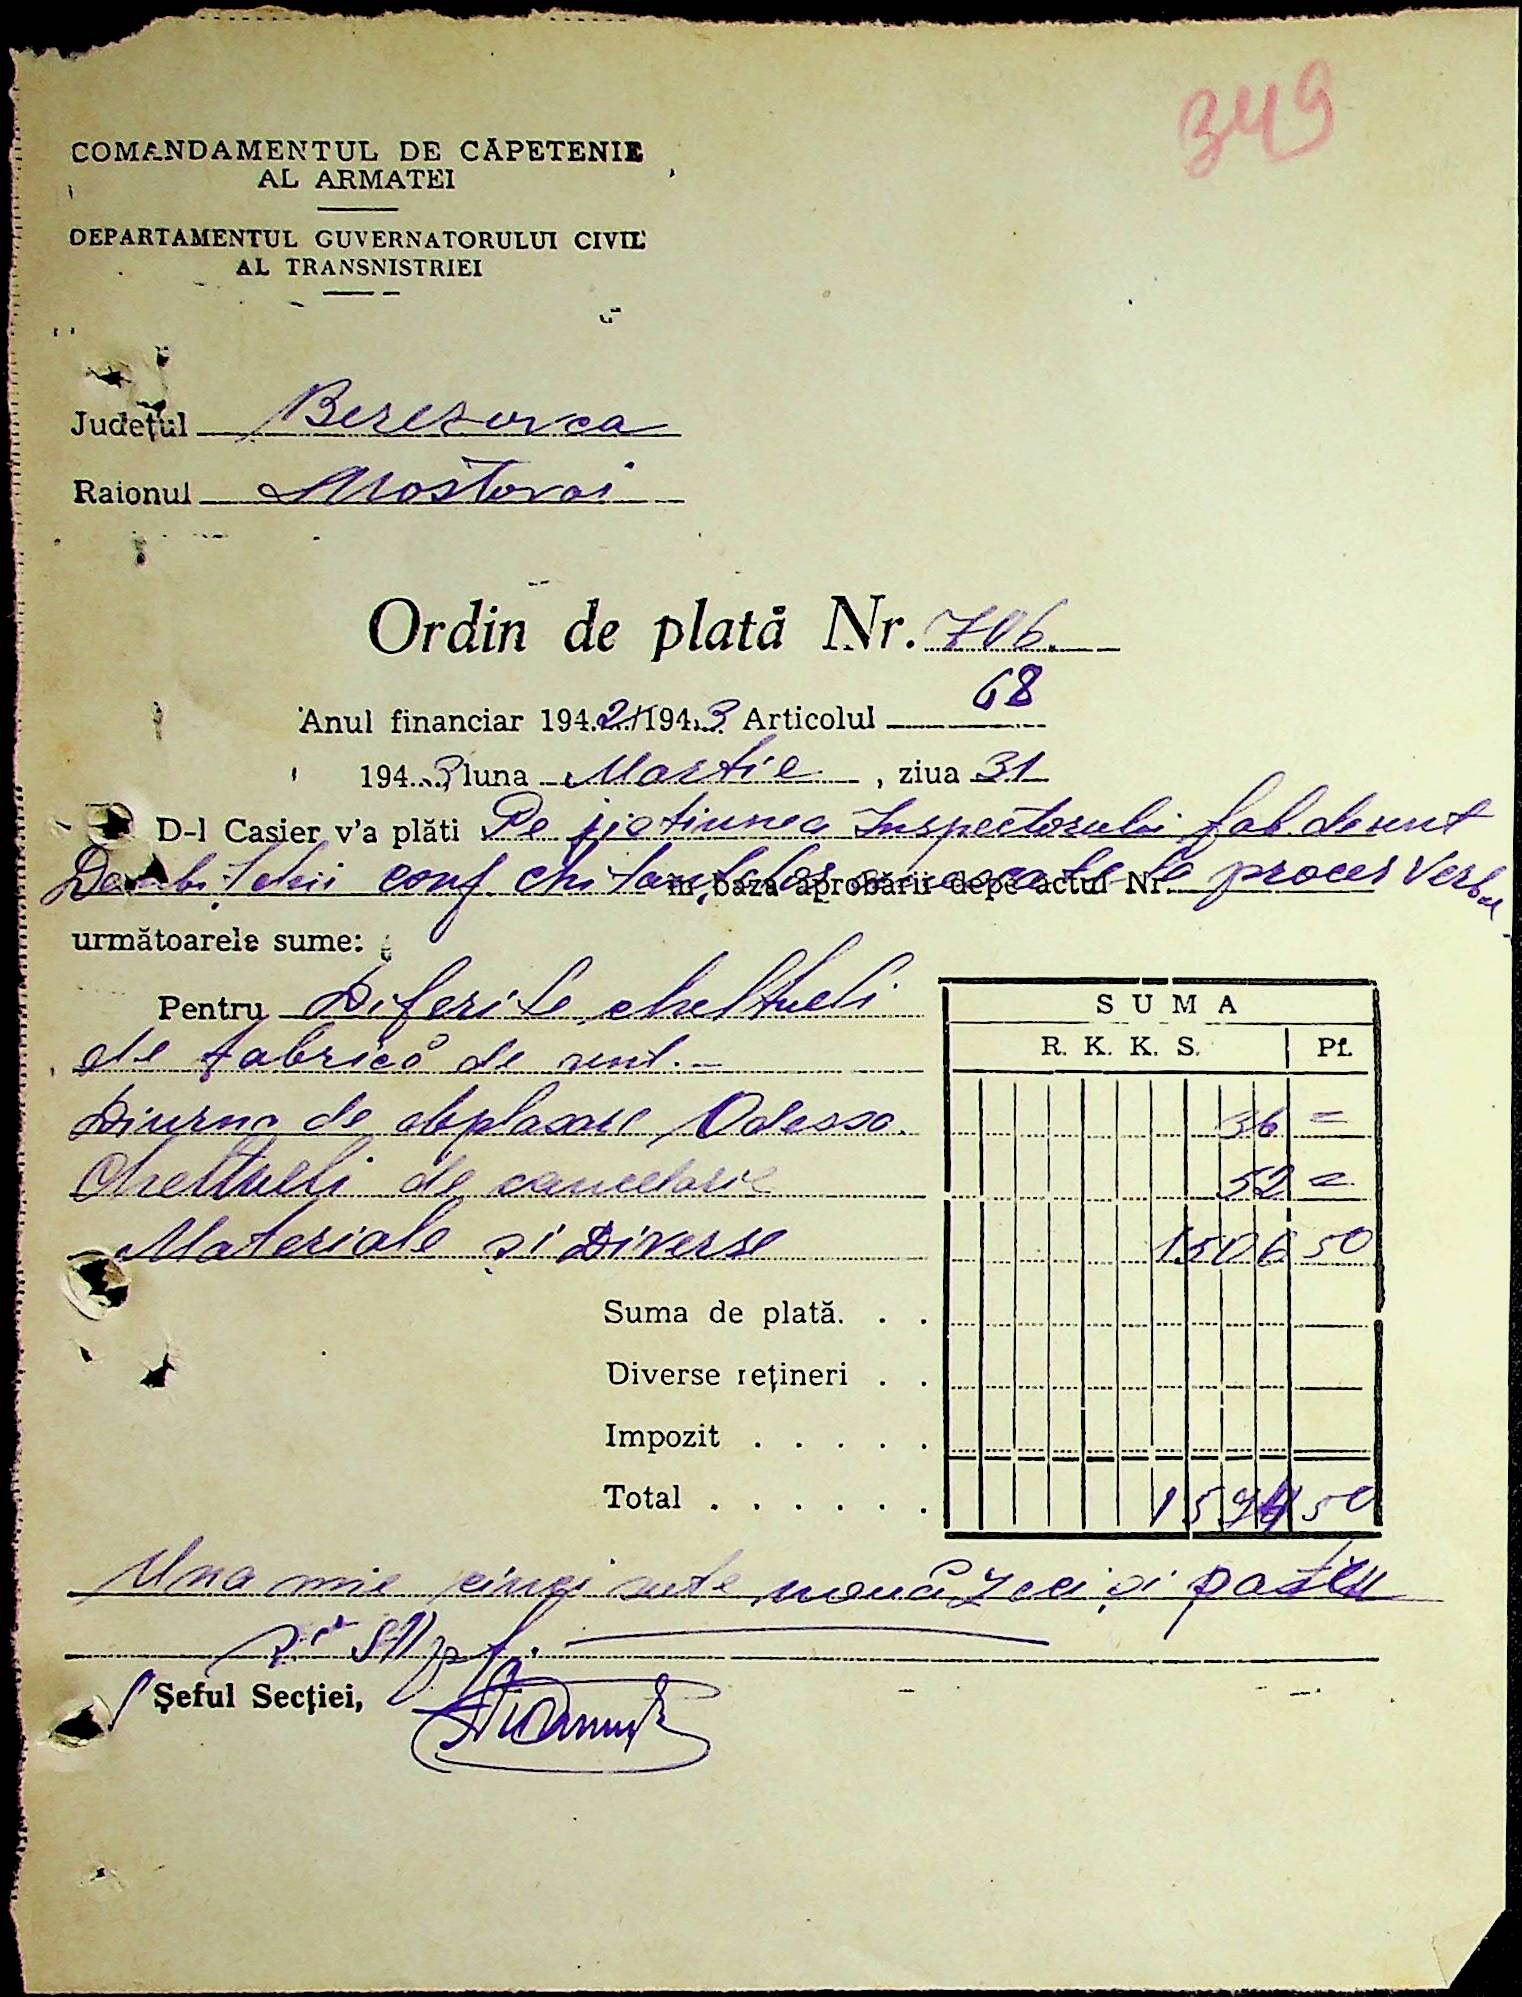 349
COMANDAMENTUL DE CĂPETENIE
AL ARMATEI
DEPARTAMENTUL GUVERNATORULUI CIVIL
AL TRANSNISTRIEI
Județul Beresovca
Raionul Mostovoi
Ordin de plată Nr. 706.
Anul financiar 1942/1943 Articolul 68
1943 luna Martie, ziua 31
D-l Casier v'a plăti Pe Inspectorului fab. de unt
conf. chitanțelor în baza aprobării depe actul Nr. proces Verbal
următoarele sume:
Pentru Diferite cheltueli
de fabrică de unt.-
SUMA
R. K. K. S. Pf.
Diurna de deplasare Odessa. 36 =
Cheltueli de cancelarie 52 =
Materiale și Diverse 1506 50
Suma de plată. . .
Diverse rețineri . .
Impozit . . . . .
Total . . . . . . 1594 50
Una mie cinci sute nouăzeci și patru
și 50 pf.
Șeful Secției,